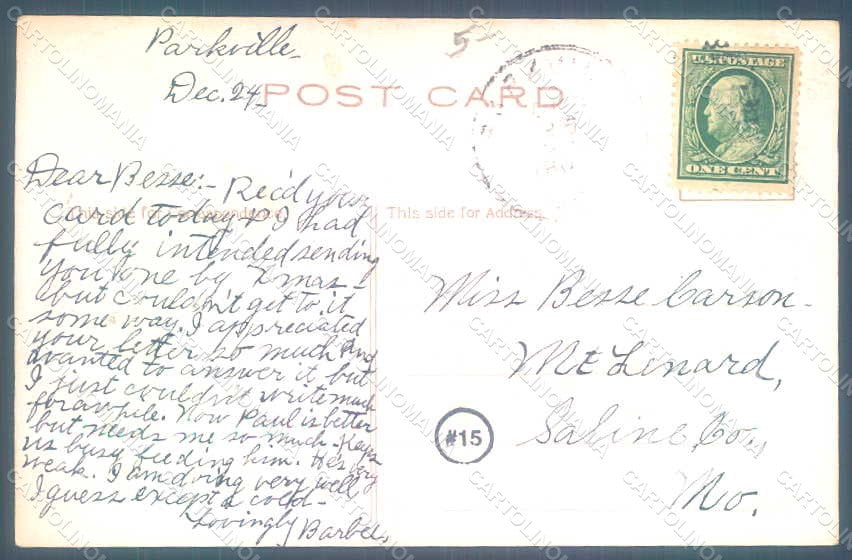 Parkville
Dec. 24
5
POST CARD
U.S. POSTAGE
ONE CENT
This side for Correspondence.
This side for Address.
Dear Besse:- Rec'd your
card today & I had
fully intended sending
you one by Xmas -
but couldn't get to it
some way. I appreciated
your letter so much and
wanted to answer it but
I just couldn't write much
for awhile. Now Paul is better
but needs me so much. Keeps
us busy feeding him. He's very
weak. I am doing very well
I guess except a cold -
Lovingly Barbee,
Miss Besse Carson -
Mt Lenard,
Saline, Co.,
Mo.
#15
CARTOLINOMANIA